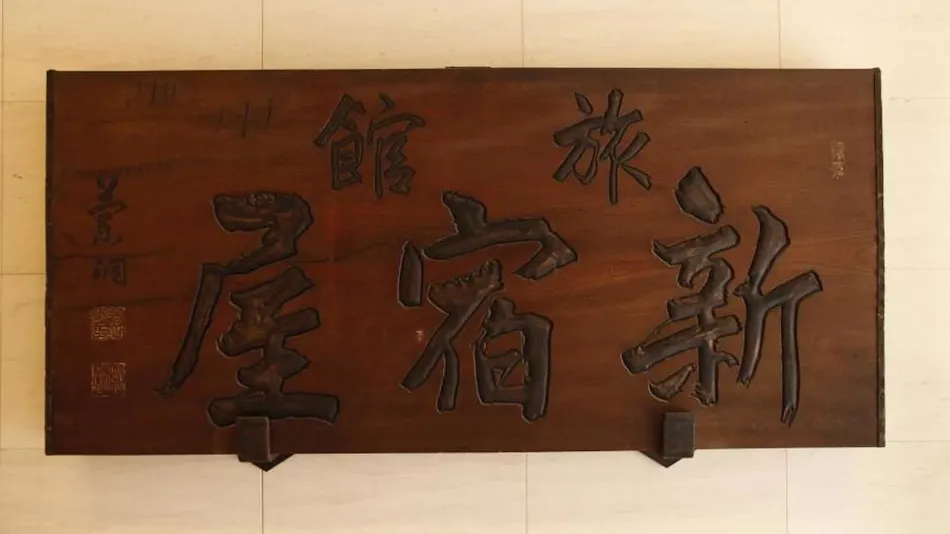 旅館
新宿屋